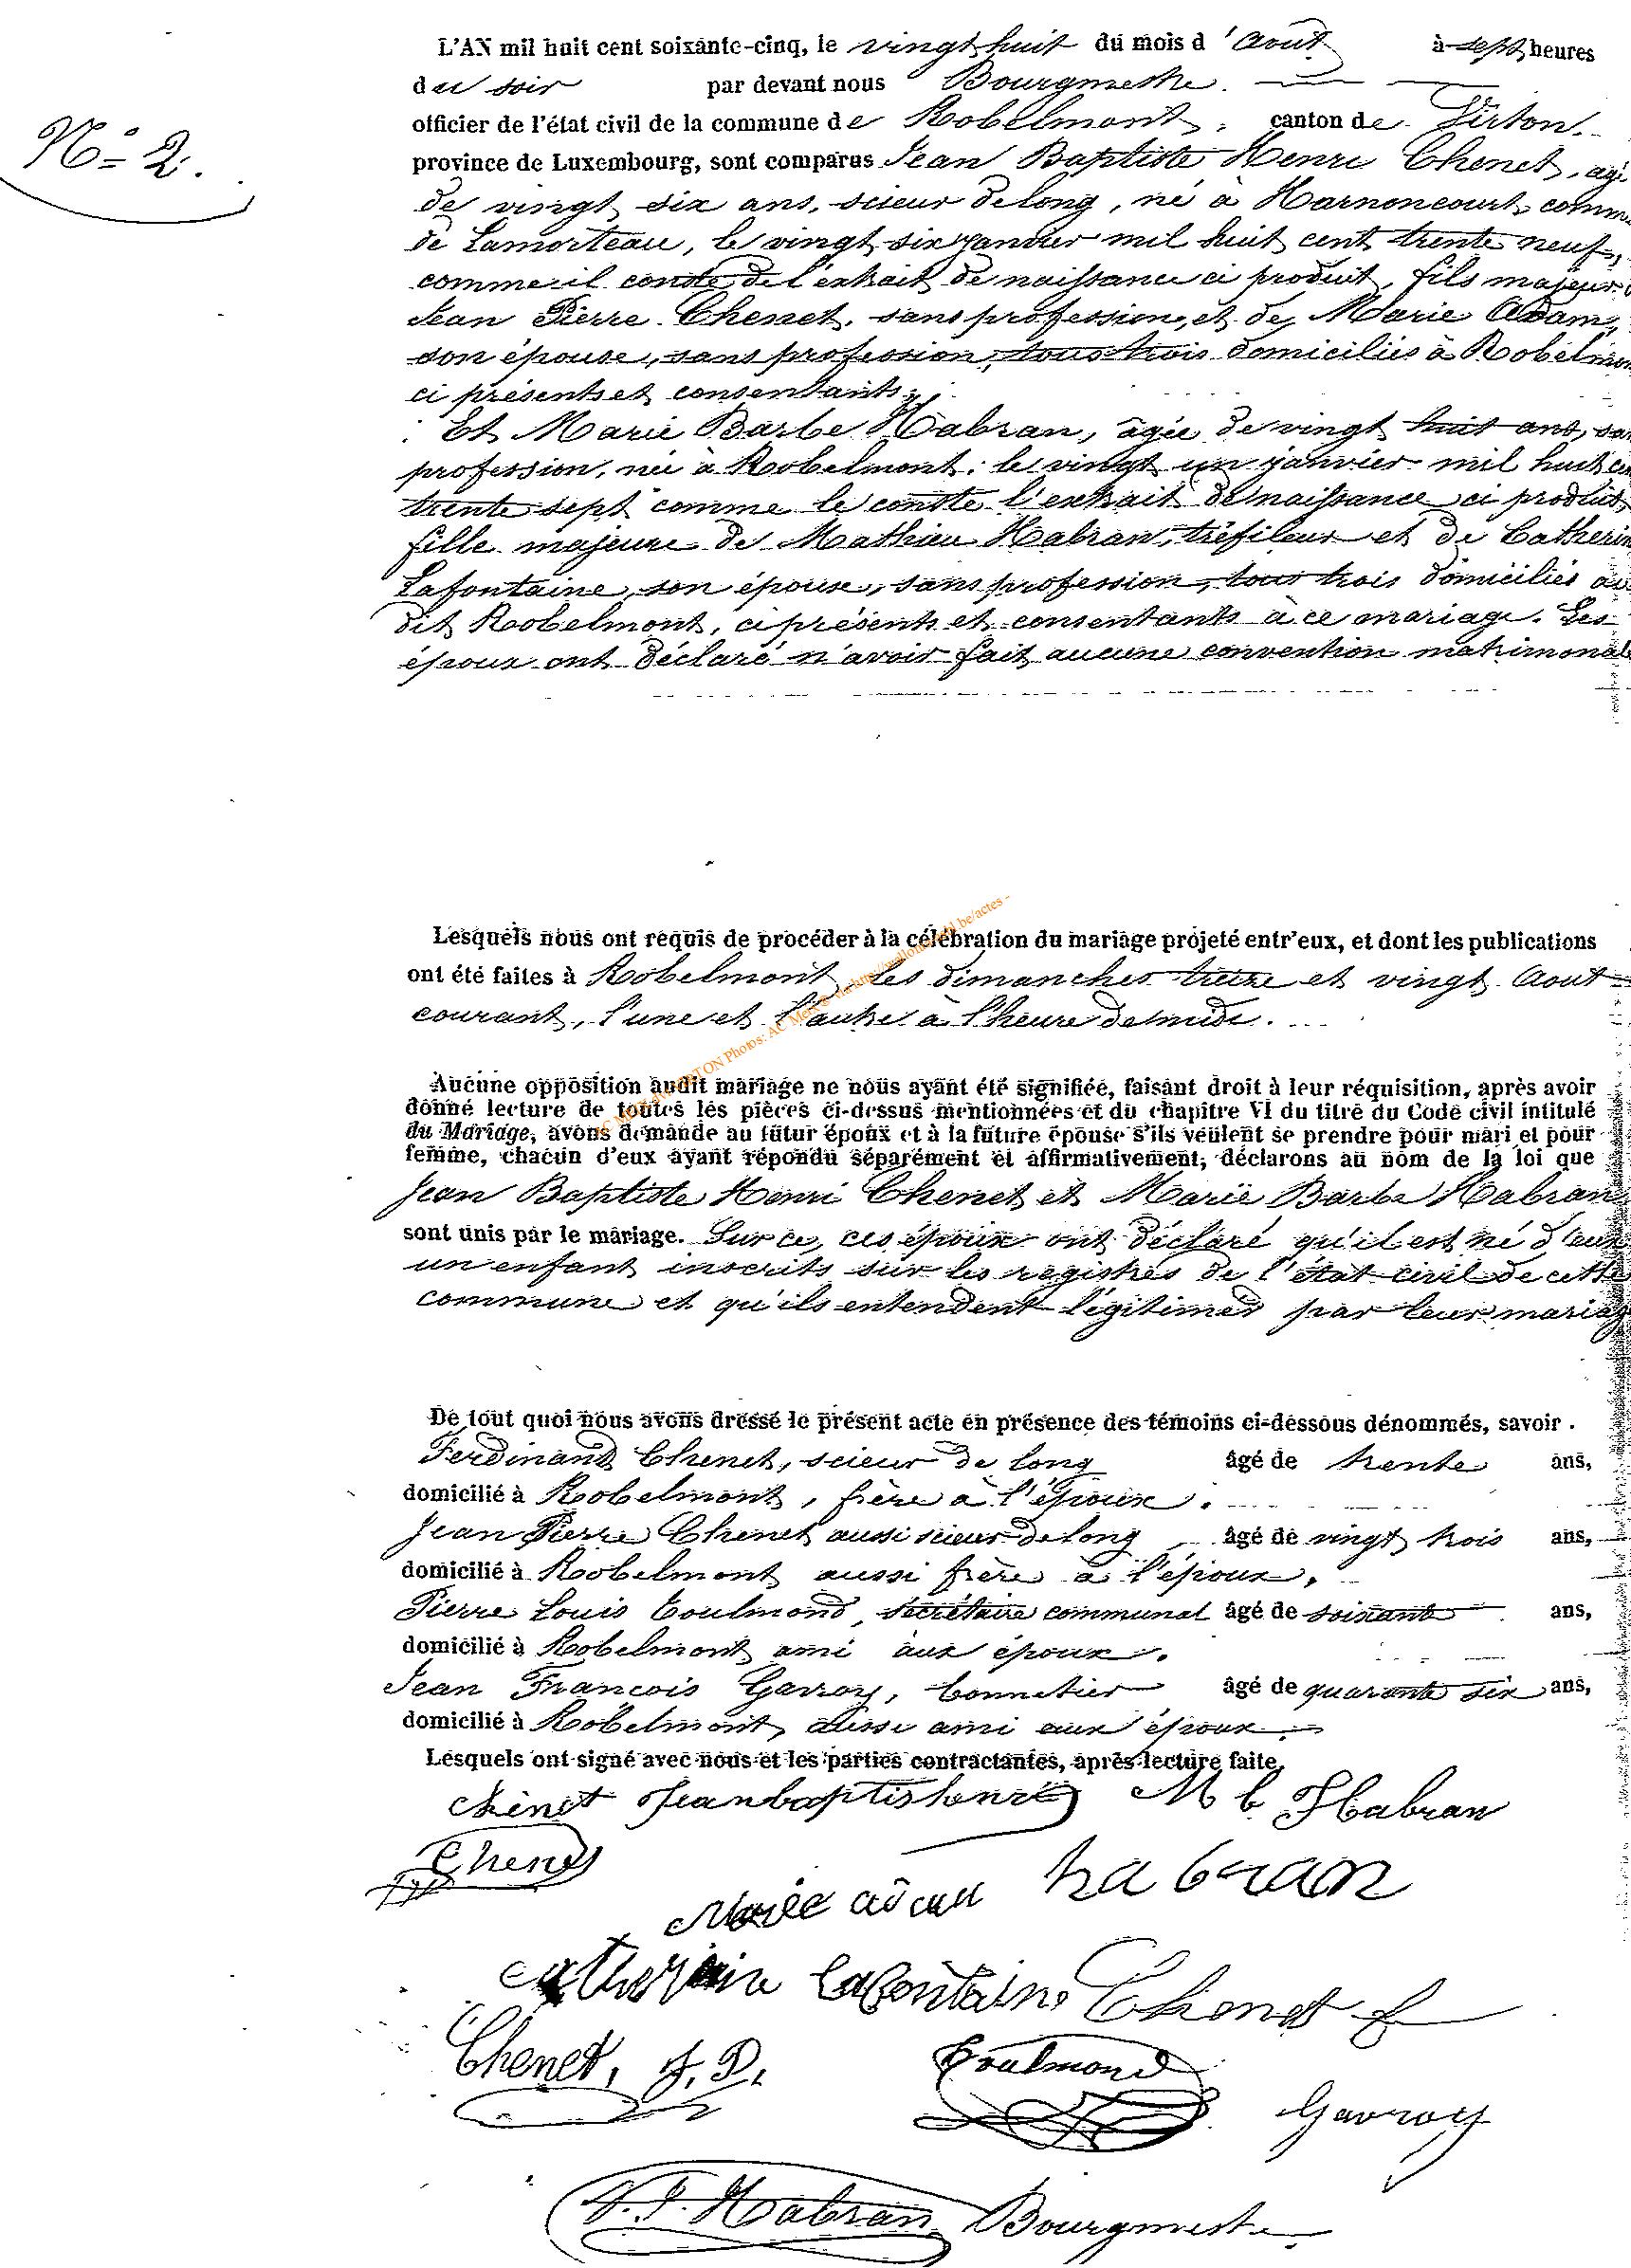 L'AN mil huit cent soixante-cinq, le vingt huit du mois d'Aout à sept heures
du soir par devant nous Bourgmestre
N° 2.
officier de l'état civil de la commune de Robelmont, canton de Virton.
province de Luxembourg, sont comparus Jean Baptiste Henri Chenet, agé
de vingt six ans, scieur de long, né à Harnoncourt, comm
de Lamorteau, le vingt six janvier mil huit cent trente neuf,
comme il conste de l'extrait de naissance ci produit, fils majeur
Jean Pierre Chenet, sans profession, et de Marie Adam,
son épouse, sans profession, tous trois domiciliés à Robelmon
ci présents et consentants;
Et Marie Barbe Habran, âgée de vingt huit ans, san
profession, née à Robelmont, le vingt un janvier mil huit cen
trente sept comme le conste l'extrait de naissance ci produit,
fille majeure de Mathieu Habran, tréfileur et de Catherin
Lafontaine, son épouse, sans profession, tous trois domiciliés au
dit Robelmont, ci présents et consentants à ce mariage. Les
époux ont déclaré n'avoir fait aucune convention matrimonial
Lesquels nous ont requis de procéder à la célébration du mariage projeté entr'eux, et dont les publications
ont été faites à Robelmont, les dimanches treize et vingt Aout
courant, l'une et l'autre à l'heure de midi.
Aucune opposition audit mariage ne nous ayant été signifiée, faisant droit à leur réquisition, après avoir
donné lecture de toutes les pièces ci-dessus mentionnées et du chapitre VI du titre du Code civil intitulé
du Mariage, avons demandé au futur époux et à la future épouse s'ils veulent se prendre pour mari et pour
femme, chacun d'eux ayant répondu séparément et affirmativement, déclarons au nom de la loi que
Jean Baptiste Henri Chenet et Marie Barbe Habran
sont unis par le mariage. Sur ce, ces époux ont déclaré qu'il est né d'eux
un enfant inscrits sur les registres de l'état civil de cette
commune et qu'ils entendent légitimer par leur mariag
De tout quoi nous avons dressé le présent acte en présence des témoins ci-dessous dénommés, savoir.
Ferdinand Chenet, scieur de long âgé de trente ans,
domicilié à Robelmont, frère à l'époux.
Jean Pierre Chenet aussi scieur de long âgé de vingt trois ans,
domicilié à Robelmont aussi frère à l'époux.
Pierre Louis Toulmond, secrétaire communal âgé de soixante ans,
domicilié à Robelmont ami aux époux.
Jean François Gavroy, bonnetier âgé de quarante six ans,
domicilié à Robelmont, aussi ami aux époux
Lesquels ont signé avec nous et les parties contractantes, après lecture faite.
chenet Jeanbaptishenri M b Habran
Chenet
Marie adam habran
catherine lafontaine Chenet f
Chenet, J. P. Toulmond
Gavroy
J. J. Habran Bourgmestre